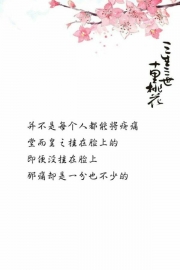 三生三世
十里桃花
并不是每个人都能将疼痛
堂而皇之挂在脸上的
即便没挂在脸上
那痛却是一分也不少的